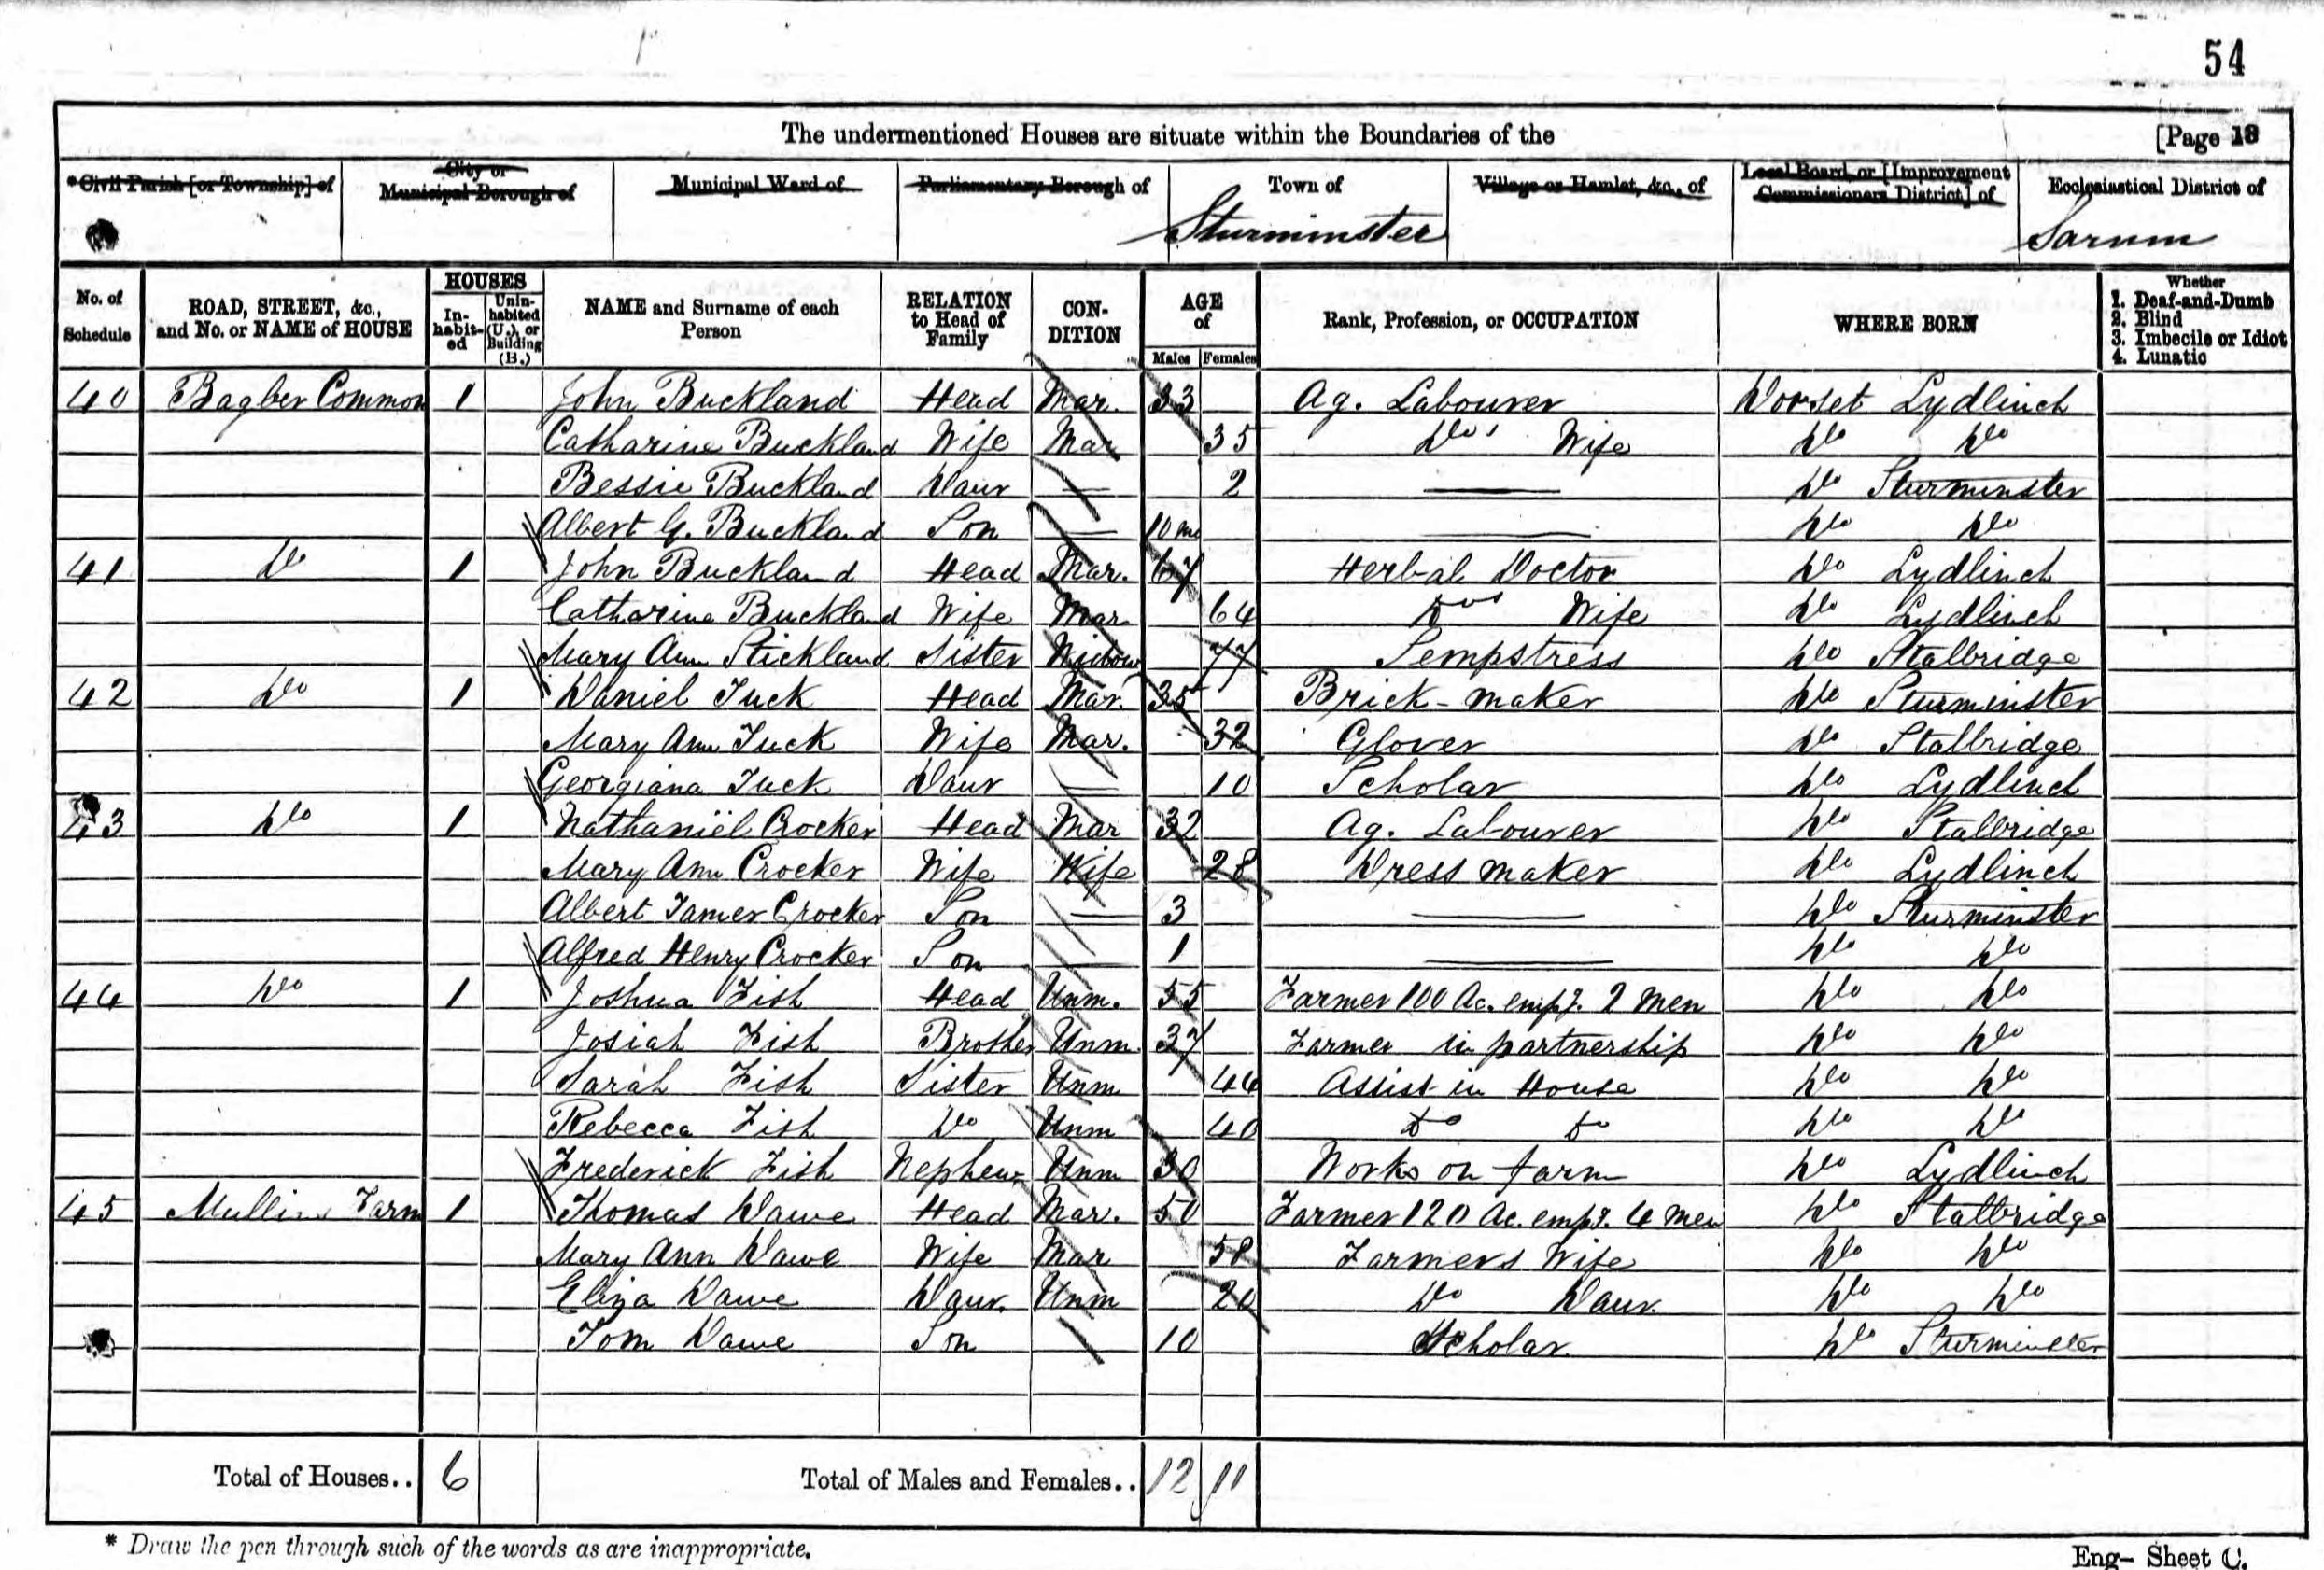 54
The undermentioned Houses are situate within the Boundaries of the [Page 18
*Civil Parish [or Township] of City or Municipal Borough of Municipal Ward of Parliamentary Borough of Town of Village or Hamlet, &c., of Local Board, or [Improvement Commissioners District] of Ecclesiastical District of
Sturminster Sarum
No. of Schedule ROAD, STREET, &c., and No. or NAME of HOUSE HOUSES In-habit-ed Unin-habited (U.), or Building (B.) NAME and Surname of each Person RELATION to Head of Family CON-DITION AGE of Males Females Rank, Profession, or OCCUPATION WHERE BORN Whether 1. Deaf-and-Dumb 2. Blind 3. Imbecile or Idiot 4. Lunatic
40 Bagber Common 1 John Buckland Head Mar. 33 Ag. Labourer Dorset Lydlinch
Catharine Buckland Wife Mar 35 Do's Wife Do Do
Bessie Buckland Daur — 2 — Do Sturminster
Albert G. Buckland Son — 10 mo — Do Do
41 Do 1 John Buckland Head Mar. 67 Herbal Doctor Do Lydlinch
Catharine Buckland Wife Mar 64 Dos Wife Do Lydlinch
Mary Ann Stickland Sister Widow 77 Sempstress Do Stalbridge
42 Do 1 Daniel Tuck Head Mar. 35 Brick-maker Do Sturminster
Mary Ann Tuck Wife Mar. 32 Glover Do Stalbridge
Georgiana Tuck Daur — 10 Scholar Do Lydlinch
43 Do 1 Nathaniël Crocker Head Mar 32 Ag. Labourer Do Stalbridge
Mary Ann Crocker Wife Wife 28 Dress maker Do Lydlinch
Albert James Crocker Son — 3 — Do Sturminster
Alfred Henry Crocker Son — 1 — Do Do
44 Do 1 Joshua Fish Head Unm. 55 Farmer 100 Ac. empg. 2 men Do Do
Josiah Fish Brother Unm 37 Farmer in partnership Do Do
Sarah Fish Sister Unm 44 Assist in House Do Do
Rebecca Fish Do Unm 40 Do Do Do Do
Frederick Fish Nephew Unm 30 Works on farm Do Lydlinch
45 Mullins Farm 1 Thomas Dawe Head Mar. 50 Farmer 120 Ac. empg. 4 men Do Stalbridge
Mary Ann Dawe Wife Mar 58 Farmers Wife Do Do
Eliza Dawe Daur. Unm 20 Do Daur. Do Do
Tom Dawe Son 10 Scholar Do Sturminster
Total of Houses.. 6 Total of Males and Females.. 12 11
* Draw the pen through such of the words as are inappropriate.
Eng- Sheet C.